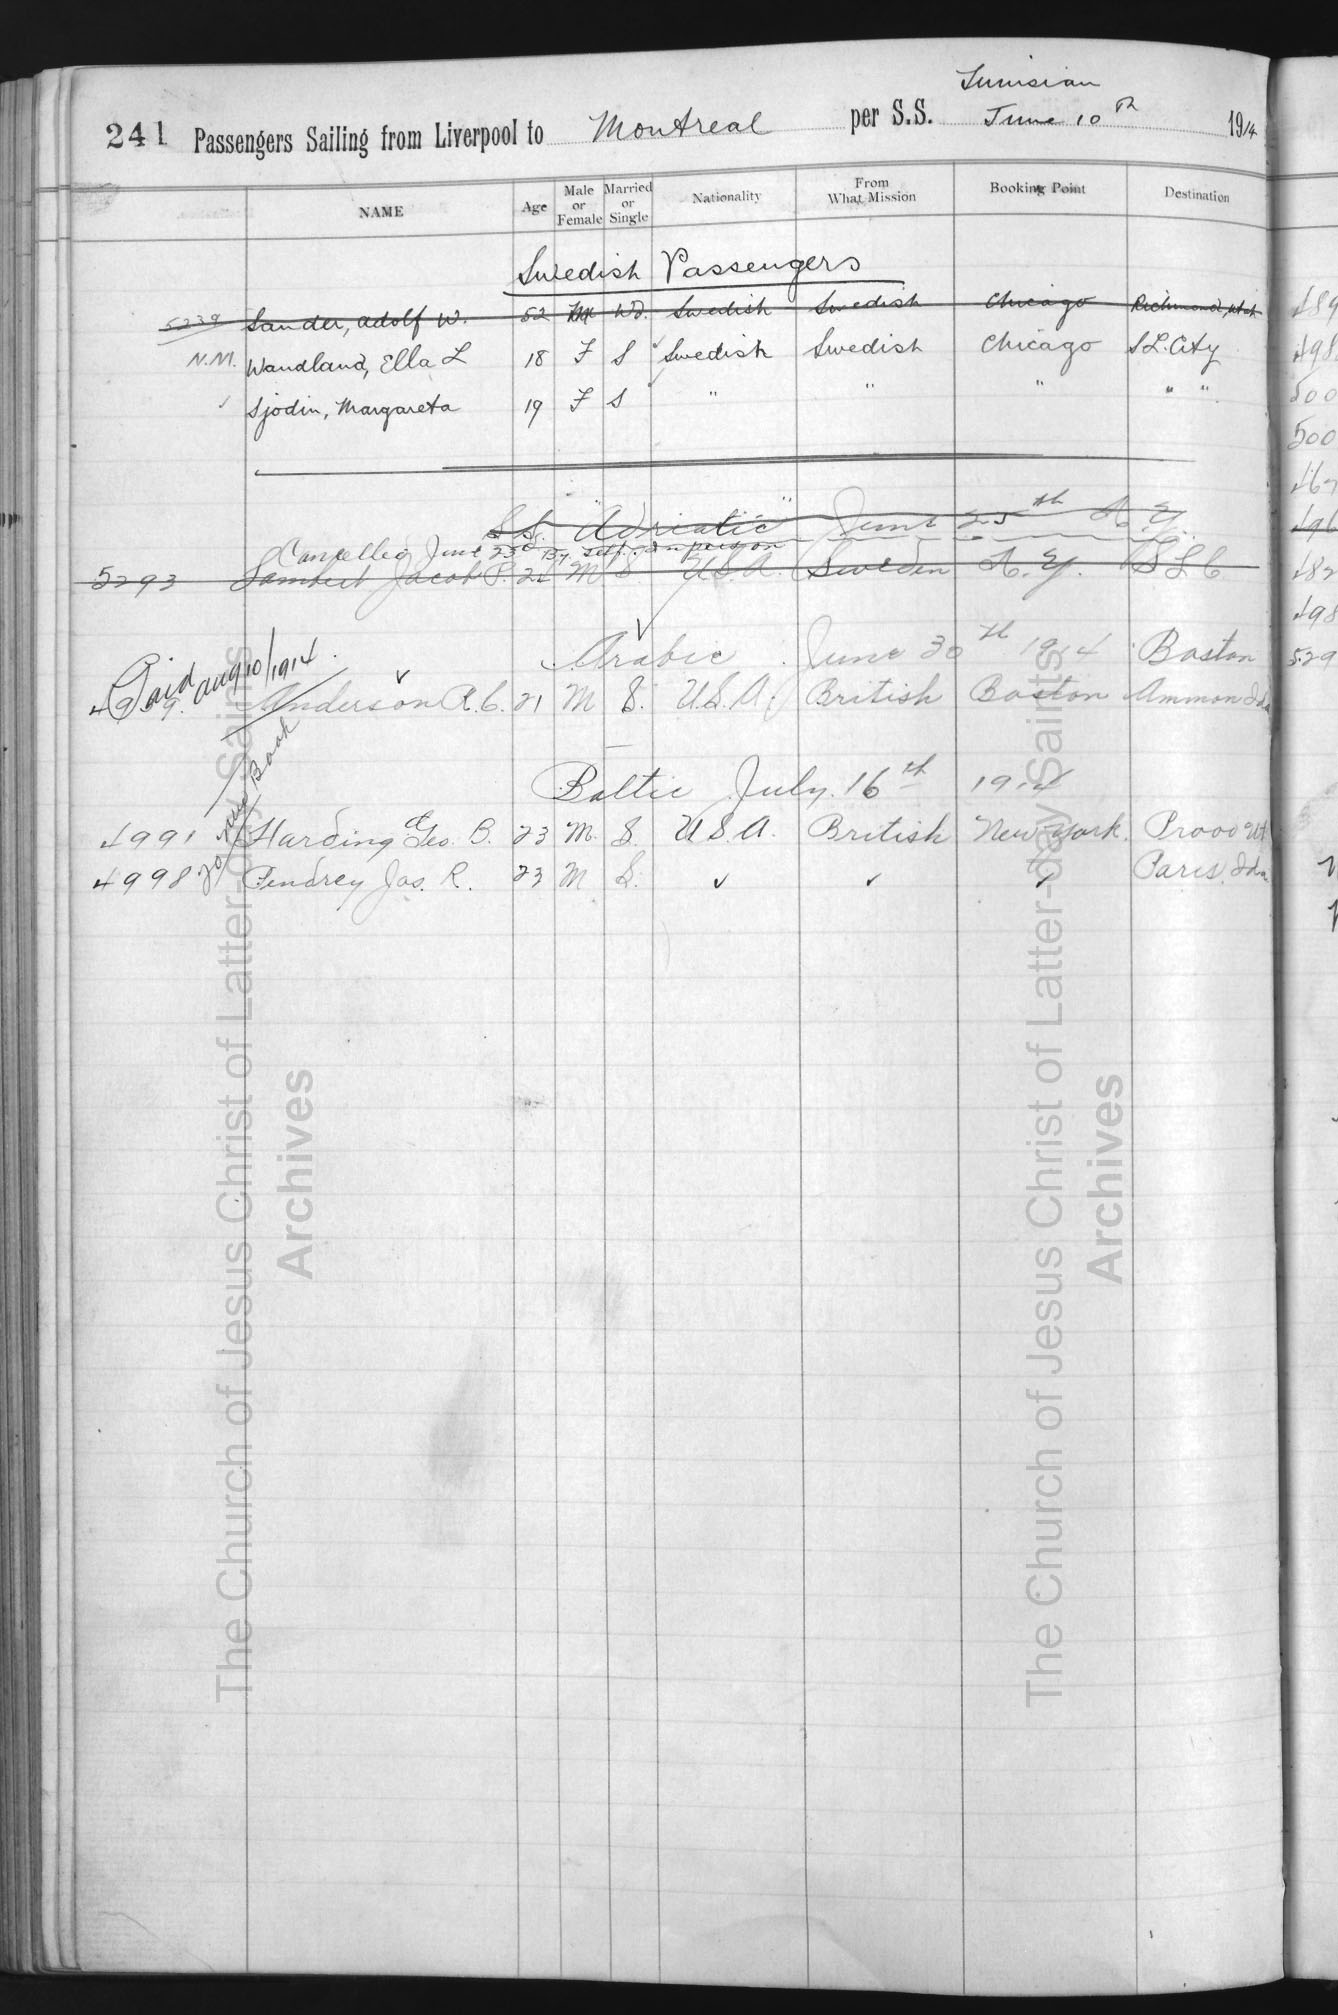 Tunisian
241 Passengers Sailing from Liverpool to Montreal per S.S. June 10th 1914
NAME Age Male or Female Married or Single Nationality From What Mission Booking Point Destination
Swedish Passengers
5239 Sander, Adolf W. 52 M Wd. Swedish Swedish Chicago Richmond, Utah
N.M. Wandland, Ella L 18 F S ✓ Swedish Swedish Chicago S L. City
✓ Sjodin, Margareta 19 F S ✓ " " " " "
S.S. "Adriatic" June 25th N.Y.
Cancelled June 23d By self in person
5293 Lambert Jacob P. 22 M S. U.S.A. Sweden N.Y. S L C
✓ Arabic June 30th 1914 Boston
Paid Aug 10/1914.
Anderson R.C. 21 M S. U.S.A. British Boston Ammon Ida
Baltic July 16th 1914
4991 Harding Geo. B. 23 M. S. U.S.A. British New York. Provo Ut
4998 Pendrey Jas. R. 23 M S. ✓ ✓ ✓ Paris, Ida
Book
The Church of Jesus Christ of Latter-day Saints
Archives
The Church of Jesus Christ of Latter-day Saints
Archives
489
498
500
500
467
496
482
498
529